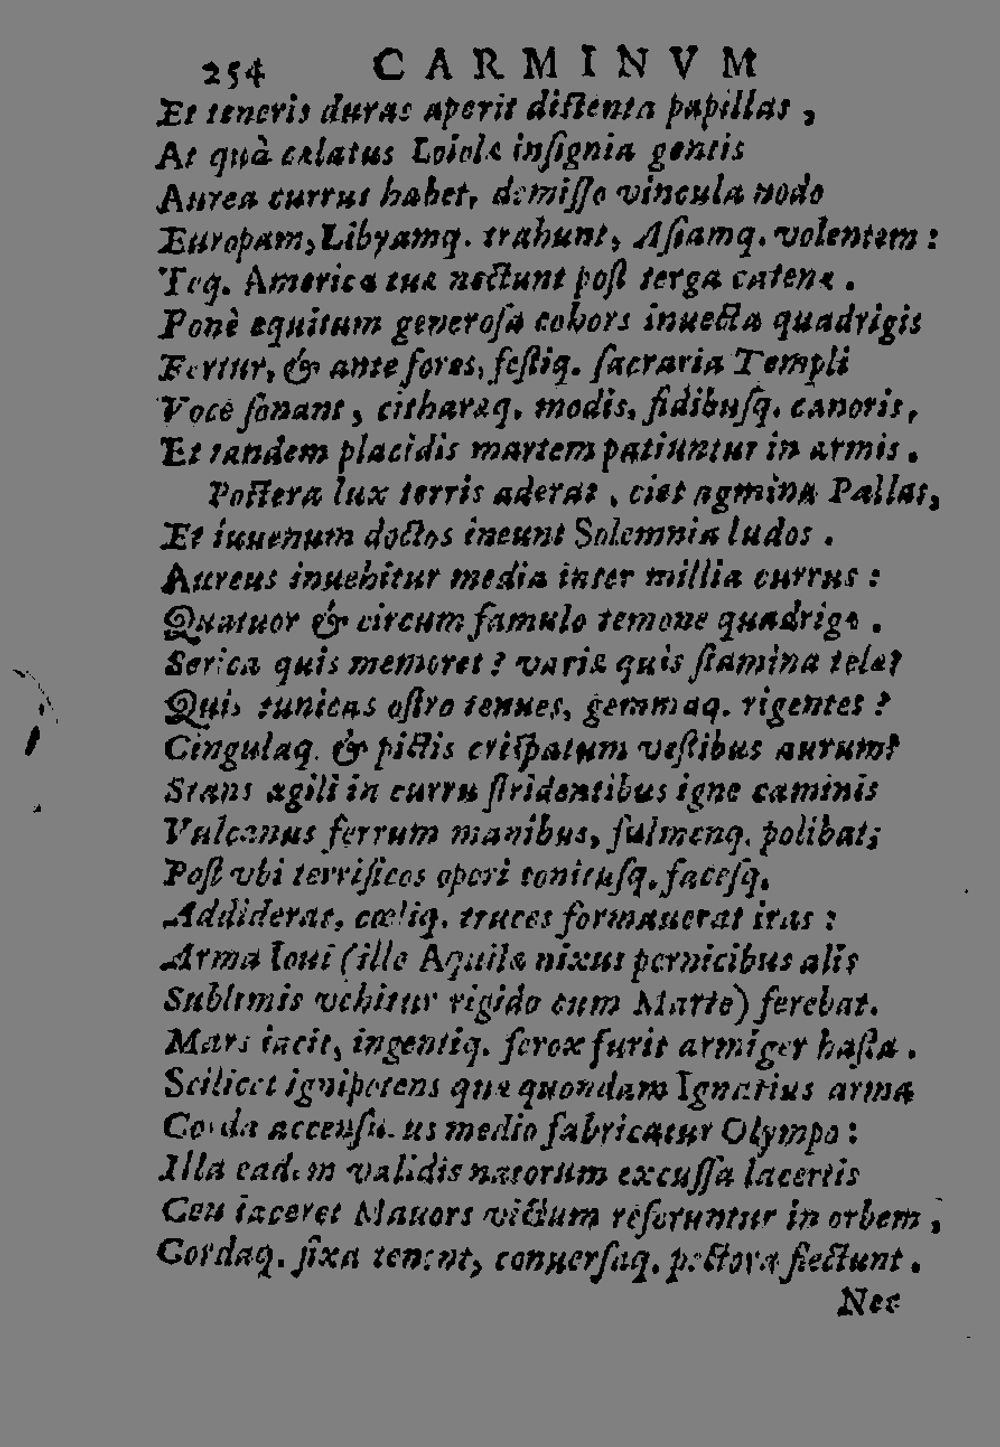 254 CARMINVM
Et teneris duras aperit distenta papillas,
At quà cælatus Loiolæ insignia gentis
Aurea currus habet, demisso vincula nodo
Europam, Libyamq. trahunt, Asiamq. volentem:
Teq. America tuæ nectunt post terga catenæ.
Ponè equitum generosa cohors inuecta quadrigis
Fertur, & ante fores, festiq. sacraria Templi
Voce sonant, citharæq. modis, fidibusq. canoris,
Et tandem placidis martem patiuntur in armis.
Postera lux terris aderat, ciet agmina Pallas,
Et iuuenum doctos ineunt Solemnia ludos.
Aureus inuehitur media inter millia currus:
Quatuor & circum famulo temone quadrigæ.
Serica quis memoret? variæ quis stamina telæ?
Quis tunicas ostro tenues, gemmaq. rigentes?
Cingulaq. & pictis crispatum vestibus aurum?
Stans agili in curru stridentibus igne caminis
Vulcanus ferrum manibus, fulmenq. polibat;
Post vbi terrificos operi tonitusq. facesq.
Addiderat, cœliq. truces formauerat iras:
Arma Ioui (ille Aquilæ nixus pernicibus alis
Sublimis vehitur rigido cum Marte) ferebat.
Mars iacit, ingentiq. ferox furit armiger hasta.
Scilicet ignipotens quæ quondam Ignatius arma
Corda medio fabricatur Olympo:
Illa eadem validis natorum excussa lacertis
Ceu iaceret Mauors victum referuntur in orbem,
Cordaq. fixa tenent, conuersaq. pectora flectunt.
Nec